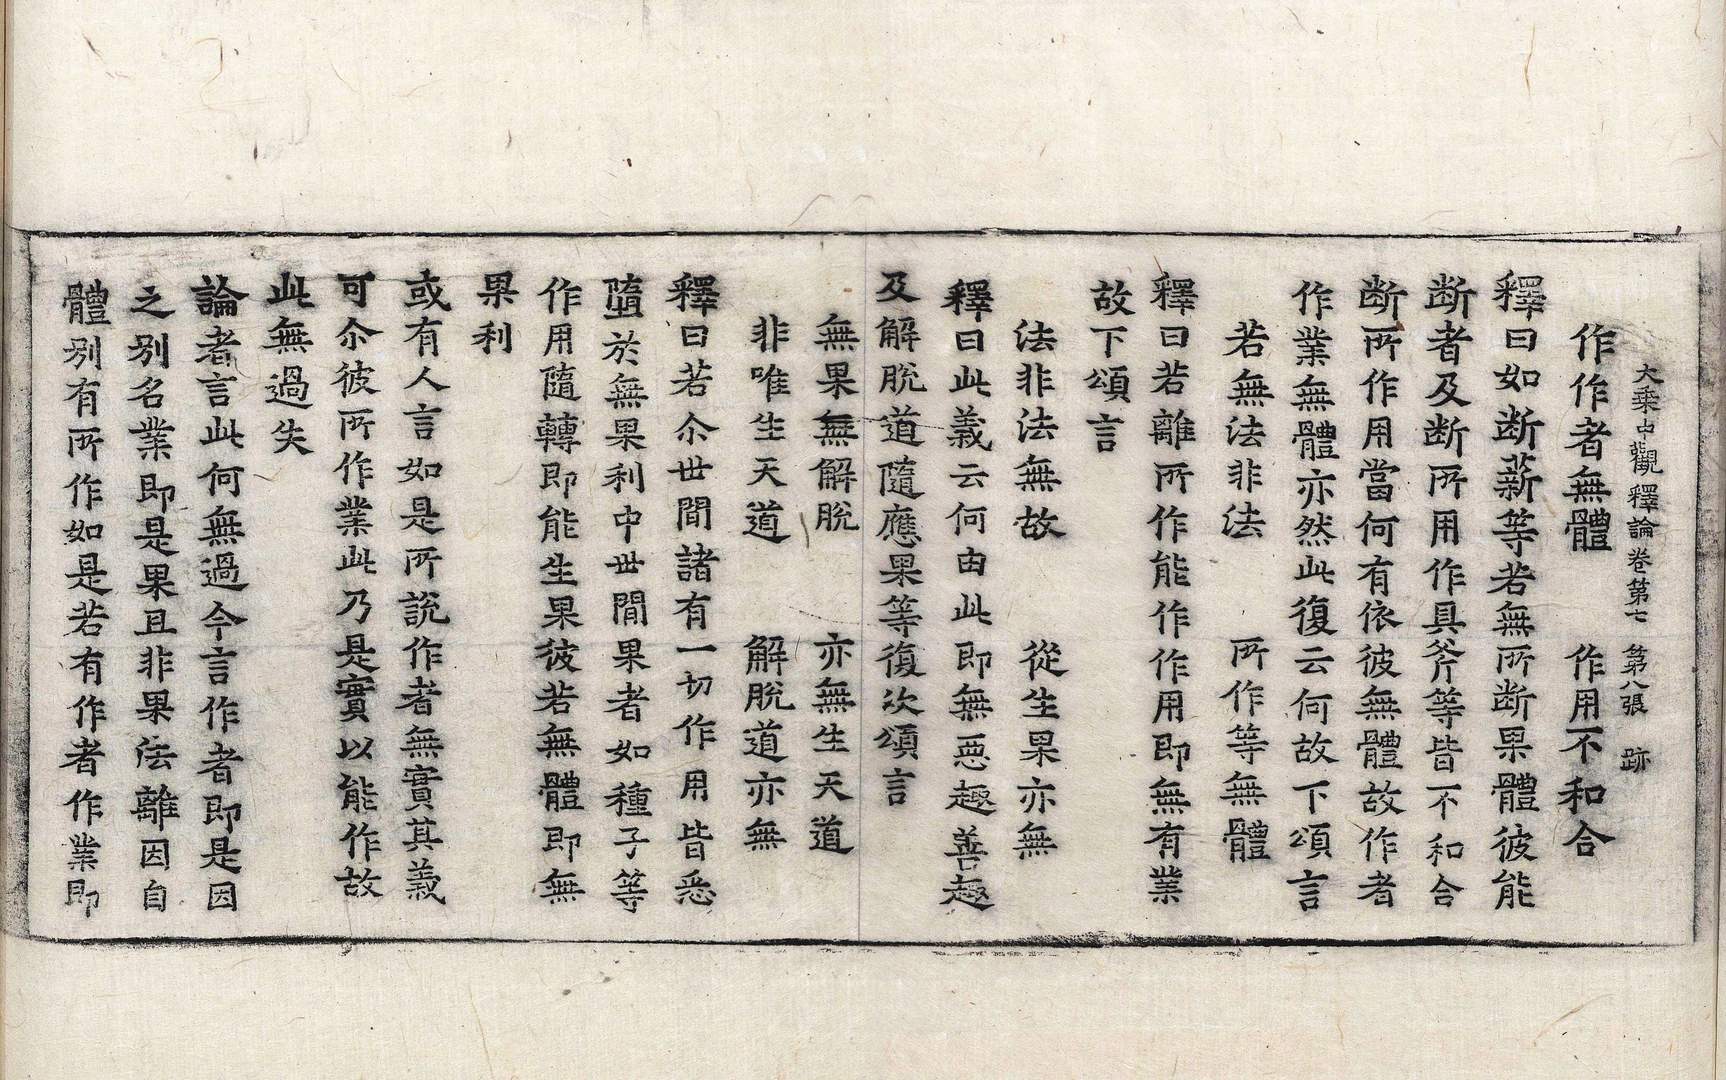 大乘中觀釋論卷第七 第八張 跡
作作者無體 作用不和合
釋曰如断薪等若無所断果體彼能
断者及断所用作具斧等皆不和合
断所作用當何有依彼無體故作者
作業無體亦然此復云何故下頌言
若無法非法 所作等無體
釋曰若離所作能作作用即無有業
故下頌言
法非法無故 從生果亦無
釋曰此義云何由此即無惡趣善趣
及解脫道隨應果等復次頌言
無果無解脫 亦無生天道
非唯生天道 解脫道亦無
釋曰若尒世間諸有一切作用皆悉
墮於無果利中世間果者如種子等
作用隨轉即能生果彼若無體即無
果利
或有人言如是所說作者無實其義
可尒彼所作業此乃是實以能作故
此無過失
論者言此何無過今言作者即是因
之別名業即是果且非果法離因自
體別有所作如是若有作者作業即